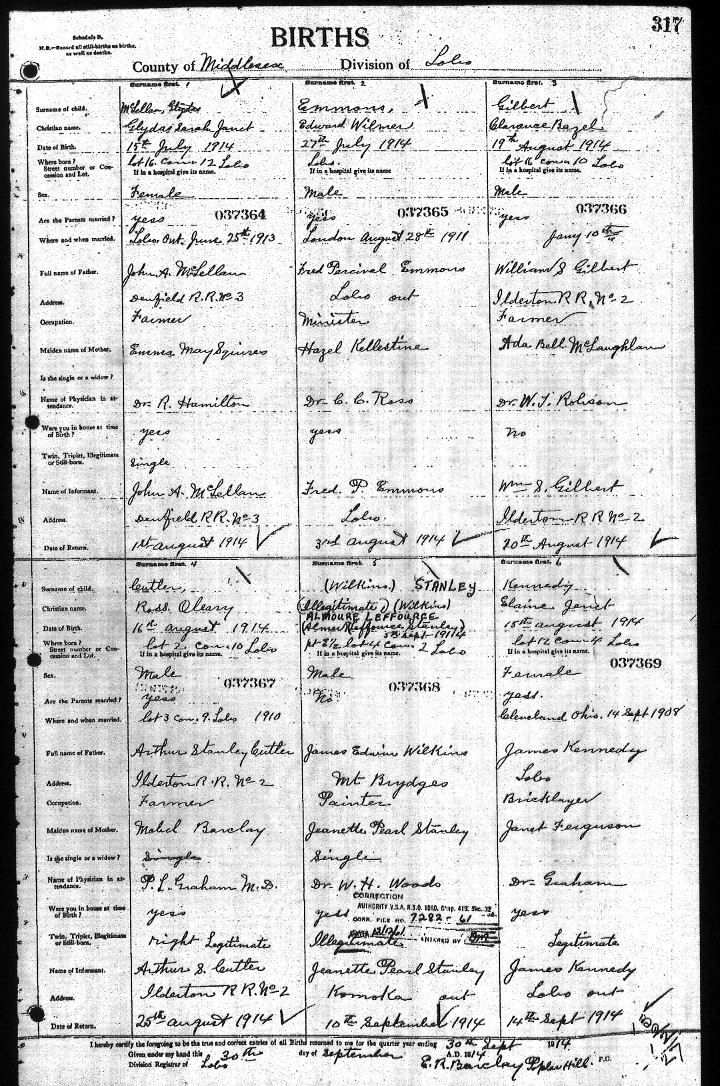 Schedule B.
N.B.—Record all still-births as births, as well as deaths.
BIRTHS
317
County of Middlesex Division of Lobo
Surname first. 1 Surname first. 2 Surname first. 3
Surname of child. McLellan, Glydas Emmons, Gilbert
Christian name. Glydas Sarah Janet Edward Wilmer Clarance Bazel
Date of Birth. 15th July 1914 27th July 1914 19th August 1914
Where born? Street number or Concession and Lot. lot 16 con 12 Lobo Lobo. lot 16 con 10 Lobo
If in a hospital give its name. If in a hospital give its name. If in a hospital give its name.
Sex. Female Male Male
037364 037365 037366
Are the Parents married? yess yess yess
Where and when married. Lobo Ont. June 25th 1913 London August 28th 1911 Jany 10th
Full name of Father. John A. McLellan Fred Percival Emmons William S Gilbert
Address. Denfield R.R. No 3 Lobo ont Ilderton R R. No 2
Occupation. Farmer Minister Farmer
Maiden name of Mother. Emma May Squires Hazel Kellestine Ada Bell McLaughlan
Is she single or a widow?
Name of Physician in attendance. Dr. R. Hamilton Dr. C. C. Ross Dr. W. J. Robison
Were you in house at time of Birth? yess yess no
Twin, Triplet, Illegitimate or Still-born. single
Name of Informant. John A. McLellan Fred. P. Emmons Wm S. Gilbert
Address. Denfield R R. No 3 Lobo. Ilderton R R No 2
Date of Return. 1st August 1914 3rd August 1914 20th August 1914
Surname first. 4 Surname first. 5 Surname first. 6
Surname of child. Cutler, (Wilkins.) STANLEY Kennedy
Christian name. Ross Oleary (Illegitimate) (Wilkins) Elaine Janet
ALMOURE LEFFOURGE
Date of Birth. 16th August 1914 5th Sept 1914 15th August 1914
Where born? Street number or Concession and Lot. lot 2. Con. 10 Lobo pt E½ lot 4 con 2 Lobo lot 12 con 4 Lobo
If in a hospital give its name. If in a hospital give its name. If in a hospital give its name.
Sex. Male Male Female
037367 037368 037369
Are the Parents married? yess No yess.
Where and when married. lot 3 Con. 9. Lobo 1910 Cleveland Ohio. 14 Sept 1908
Full name of Father. Arthur Stanley Cutler James Edwin Wilkins James Kennedy
Address. Ilderton R. R. No 2 Mt Brydges Lobo
Occupation. Farmer Painter Bricklayer
Maiden name of Mother. Mabel Barclay Jeanette Pearl Stanley Janet Ferguson
Is she single or a widow? Single Single
Name of Physician in attendance. P. L. Graham M. D. Dr. W. H. Woods Dr Graham
CORRECTION
AUTHORITY V.S.A. R.S.O. Chap. 412. Sec.
CORR. FILE NO. 7282-61
Were you in house at time of Birth? yess yess yess
Twin, Triplet, Illegitimate or Still-born. right Legitimate Illegitimate Legitimate
ENTERED BY
Name of Informant. Arthur S. Cutler Jeanette Pearl Stanley James Kennedy
Address. Ilderton R R. No 2 Komoka ont Lobo ont
Date of Return. 25th August 1914 10th September 1914 14th Sept 1914
I hereby certify the foregoing to be the true and correct entries of all Births returned to me for the quarter year ending 30th Sept 1914
Given under my hand this 30th day of September A.D. 1914
Division Registrar of Lobo E. R. Barclay Poplar Hill. P.O.